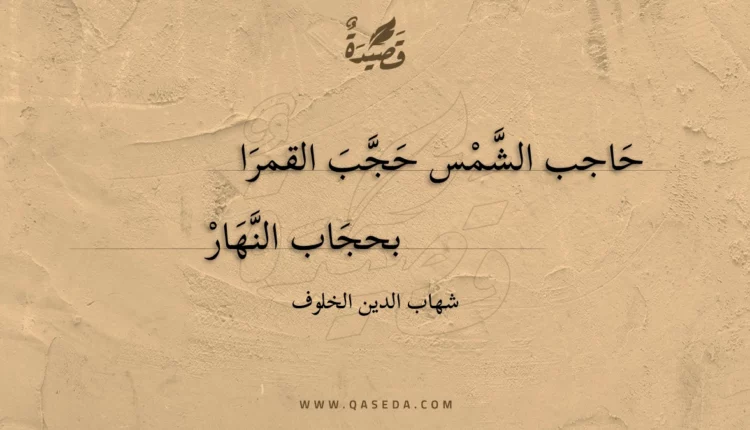 قَصِيْدَةٌ
حَاجب الشَّمْس حَجَّبَ القمرَا
بحجَاب النَّهَارْ
شهاب الدين الخلوف
WWW.QASEDA.COM